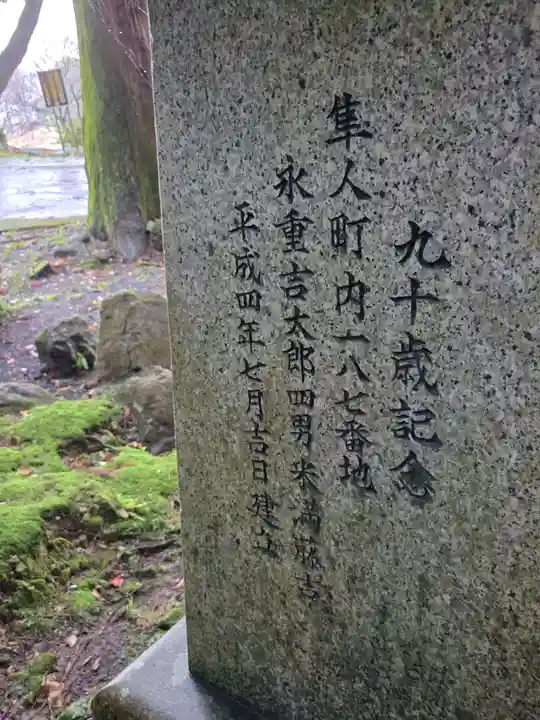 九十歳記念
隼人町内一八七番地
永重吉太郎四男米満蔵吉
平成四年七月吉日建立